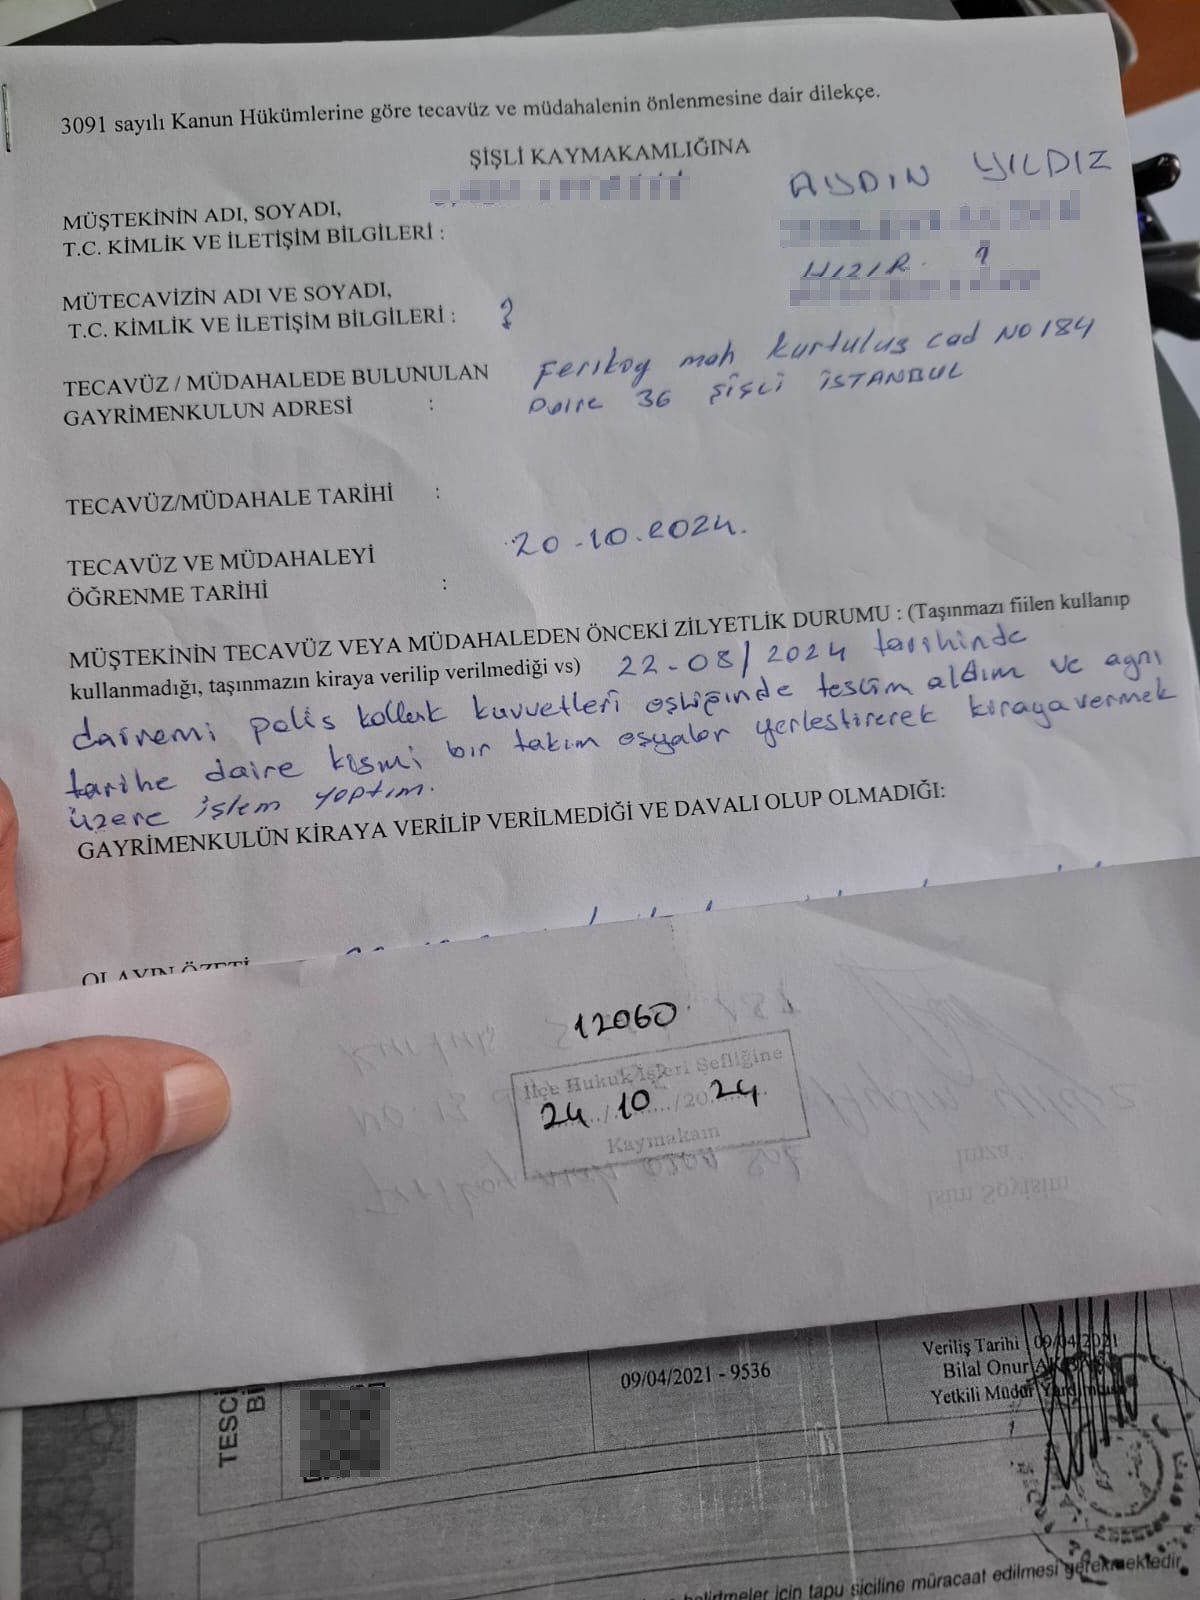 3091 sayılı Kanun Hükümlerine göre tecavüz ve müdahalenin önlenmesine dair dilekçe.
ŞİŞLİ KAYMAKAMLIĞINA
MÜŞTEKİNİN ADI, SOYADI,
T.C. KİMLİK VE İLETİŞİM BİLGİLERİ :
AYDIN YILDIZ
HIZIR. ?
MÜTECAVİZİN ADI VE SOYADI,
T.C. KİMLİK VE İLETİŞİM BİLGİLERİ : ?
TECAVÜZ / MÜDAHALEDE BULUNULAN
GAYRİMENKULUN ADRESİ :
Ferıkoy mah Kurtuluş cad NO 184
Daire 36 şişli İSTANBUL
TECAVÜZ/MÜDAHALE TARİHİ :
TECAVÜZ VE MÜDAHALEYİ
ÖĞRENME TARİHİ :
20.10.2024.
MÜŞTEKİNİN TECAVÜZ VEYA MÜDAHALEDEN ÖNCEKİ ZİLYETLİK DURUMU : (Taşınmazı fiilen kullanıp
kullanmadığı, taşınmazın kiraya verilip verilmediği vs) 22-08/2024 tarihinde
dairemi polis kolluk kuvvetleri eşliğinde teslim aldım ve aynı
tarihe daire kısmi bir takım eşyalar yerleştirerek kirayavermek
üzere işlem yaptım.
GAYRİMENKULÜN KİRAYA VERİLİP VERİLMEDİĞİ VE DAVALI OLUP OLMADIĞI:
OLAYIN ÖZETİ
12060
İlçe Hukuk İşleri Şefliğine
24/10/2024
Kaymakam
İmza
İsim Soyisim
TESCİ
Bİ
09/04/2021 - 9536
Veriliş Tarihi 09/04/2021
Bilal Onur
Yetkili Müdür
için tapu siciline müracaat edilmesi gerekmektedir.